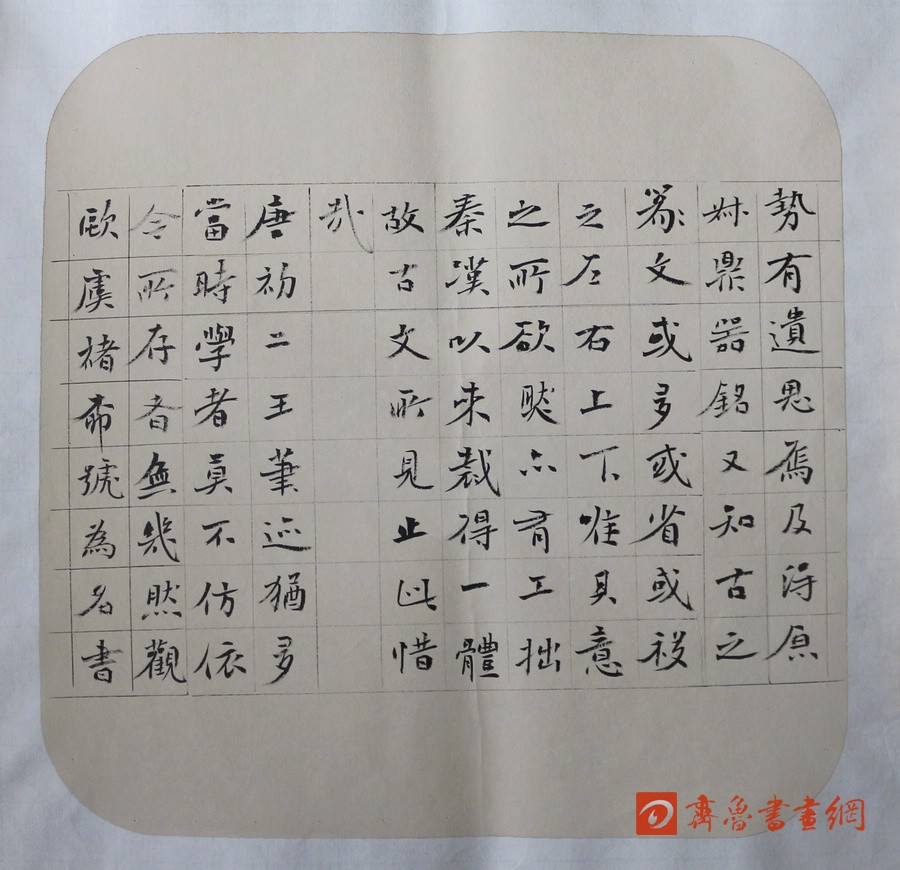 勢有遺思焉及得原
叔鼎器銘又知古之
篆文或多或省或移
之左右上下唯其意
之所欲然亦有工拙
秦漢以來裁得一體
故古文所見止此惜
哉
唐初二王筆迹猶多
當時學者莫不仿依
今所存者無幾然觀
歐虞褚而號為名書
齊魯書畫網